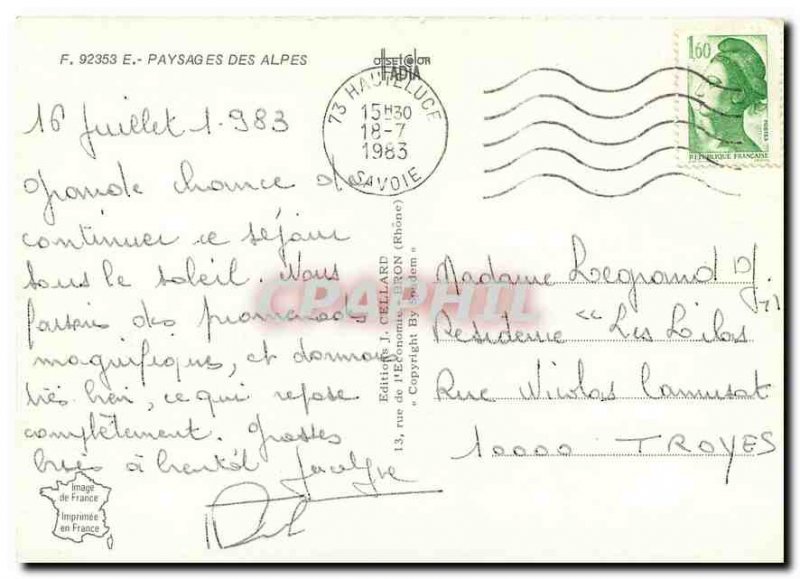 F. 92353 E.- PAYSAGES DES ALPES
OFFSET COLOR
IADIA
73 HAUTELUCE
15H30
18-7
1983
SAVOIE
1,60
POSTES
REPUBLIQUE FRANÇAISE
16 juillet 1.983
Grande chance de
continuer ce séjour
sous le soleil. Nous
faisons des promenades
magnifiques, et dormons
très bien, ce qui repose
complètement. Grosses
bises à bientôt Jacqueline
Editions J. CELLARD
13, rue de l'Economie - BRON (Rhône)
« Copyright By Spadem »
Madame Legrand
Residence "Les Lilas
Rue Nicolas Camusat
10000 TROYES
Image
de France
Imprimée
en France
CPAPHIL